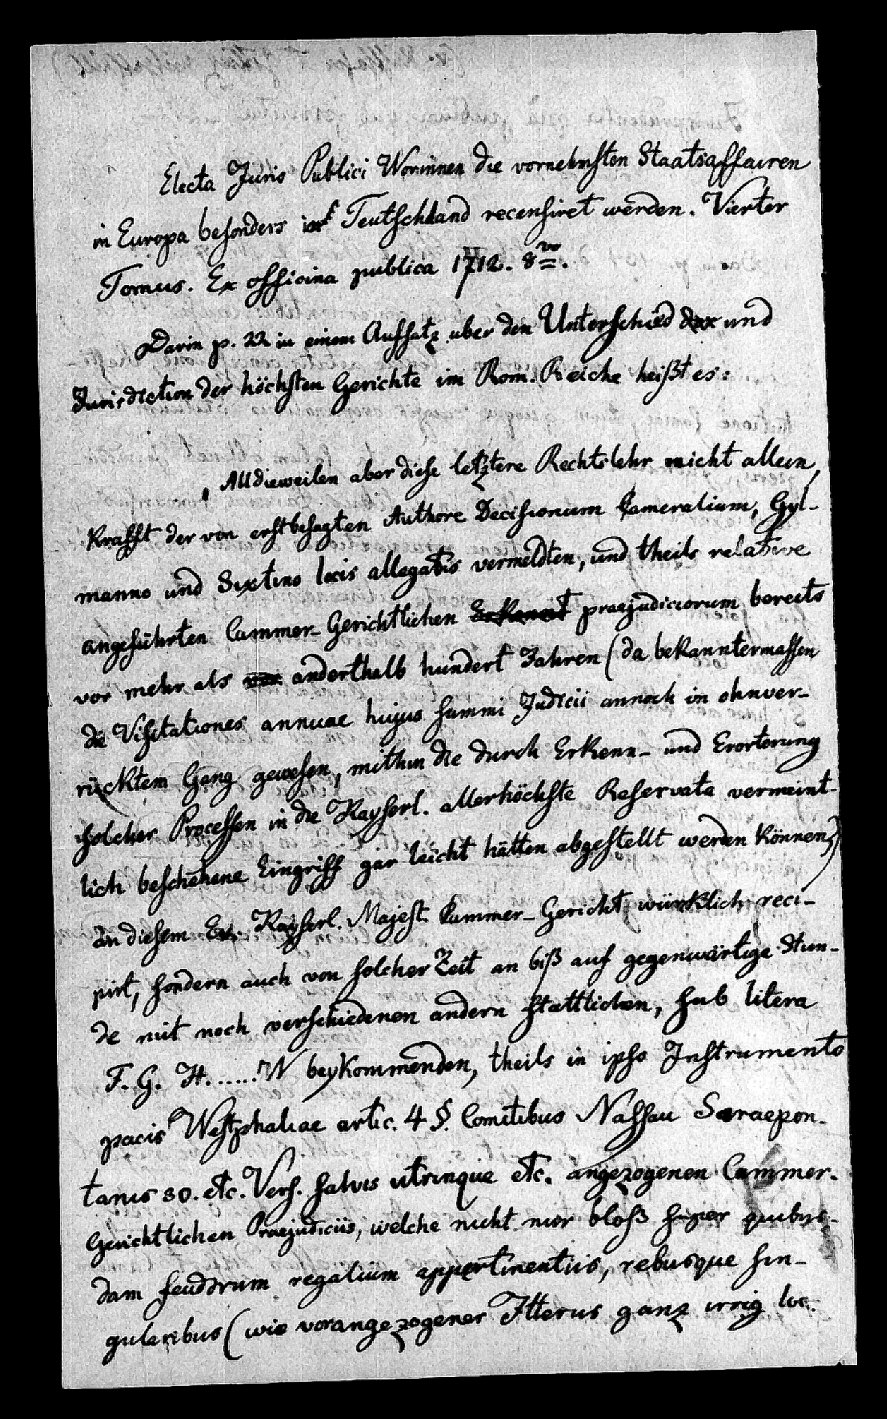 Electa Juris Publici Worinnen die vornehmsten Staatsaffairen
in Europa besonders in Teutschland recensiret werden. Vierter
Tomus. Ex officina publica 1712. 8vo.
Darin p. 22 in einem Aufsatz uber den Unterschied und
Jurisdiction der höchsten Gerichte im Rom. Reiche heißt es:
„Alldieweilen aber diese letztere Rechtslehr nicht allein,
Krafft der von erstbesagten Authore Decisionum Cameralium, Gyl-
manno und Sixtino locis allegatis vermeldten, und theils relative
angeführten Cammer-Gerichtlichen praejudiciorum bereits
vor mehr als anderthalb hundert Jahren (da bekanntermassen
die Visitationes annuae hujus summi Judicii annoch in ohnver-
rücktem Gang gewesen, mithin die durch Erkenn- und Erorterung
solcher Processen in die Kayserl. allerhöchste Reservata vermeint-
lich beschehene Eingriff gar leicht hätten abgestellt werden können)
an diesem Ew. Kayserl. Majest. Cammer-Gericht würklich reci-
pirt, sondern auch von solcher Zeit an biß auf gegenwärtige Stun-
de mit noch verschiedenen andern stattlichen, sub litera
F. G. H. ...... N beykommenden, theils in ipso Instrumento
pacis Westphaliae artic. 4 §. Comitibus Nassau Saraepon-
tanis 30. etc. Vers. salvis utrinque etc. angezogenen Cammer-
Gerichtlichen Praejudiciis, welche nicht nur bloß super quibus-
dam feudorum regalium appertinentiis, rebusque sin-
gularibus (wie vorangezogener Itterus ganz irrig loc.